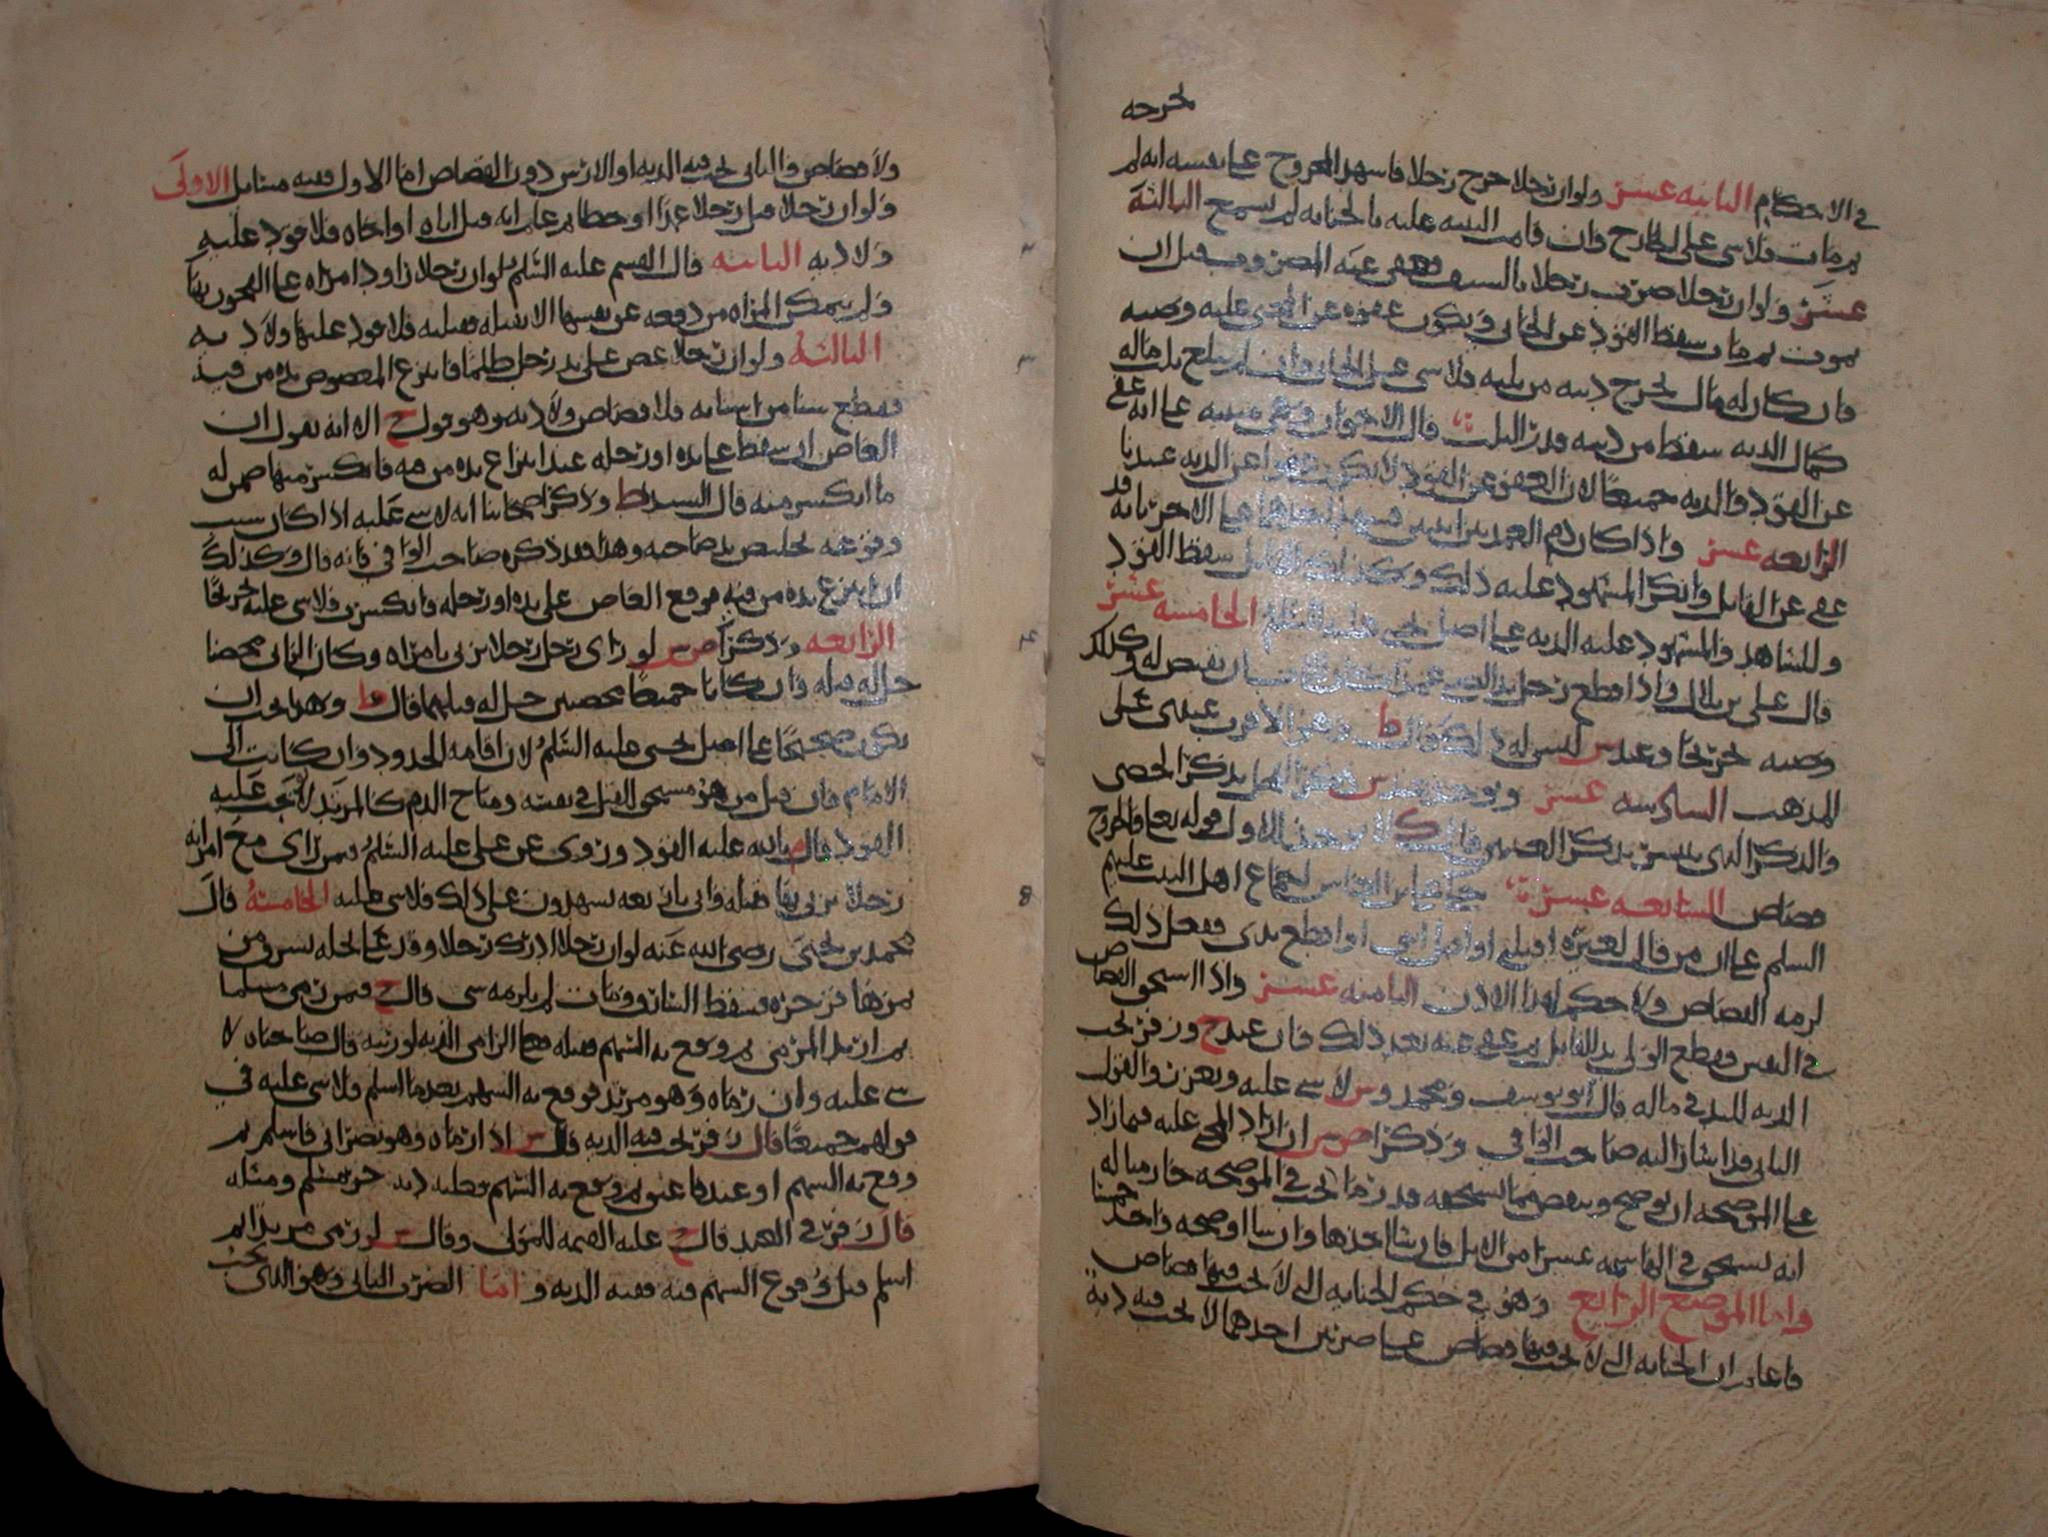 لم يجرحه
في الاحكام الثانيه عشر ولو ان رجلا جرح رجلا فاشهد المجروح على نفسه انه لم
ثم مات فلا شي على الجارح وان قامت البينه عليه بالجنايه لم تسمع الثالثة
عشر ولو ان رجلا ضرب رجلا بالسيف فعفى عنه المضروب قبل ان
يموت ثم مات سقط القود عن الجاني ويكون عفوه عن المجني عليه وصيه
فان كان له مال يخرج ديته من ثلثه فلا شي على الجاني وان لم يبلغ ثلث ماله
كمال الديه سقط من ديته قدر الثلث قال الاخوان وعفى عنه على انه عفى
عن القود والديه جميعا لان العفو عن القود لا يكون عفوا عن الديه عندنا
الرابعه عشر واذا كان دم العمد بين اثنين فشهد احدهما على الاخر بانه قد
عفى عن القاتل وانكر المشهود عليه ذلك وكذلك القاتل سقط القود
وللشاهد والمشهود عليه الديه على اصل يحيى عليه السلم الخامسه عشر
قال علي بن بلال واذا قطع رجل يد الصبي عمدا ان يقتص له وكذلك
وصيه خرجا وعند ش ليس له ذلك قال ط وهو الاقرب عندي على
المذهب السادسه عشر ويوخذ عند ش ذكر الفحل بذكر الخصي
والذكر الذي ينتشر بذكر العنين قال ك لا يوخذ الاول قوله تعالى والجروح
قصاص السابعه عشر حكى ابو العباس اجماع اهل البيت عليهم
السلم على ان من قال لغيره اقتلني او اقتل ابني او اقطع يدي ففعل ذلك
لزمه القصاص ولا حكم لهذا الاذن الثامنه عشر واذا استحق القصاص
في النفس فقطع الولي يد القاتل ثم عفى عنه بعد ذلك فان عند ح وزفر يجب
الديه لليد في ماله قال ابو يوسف ومحمد و ش لا شي عليه ويعزر والقول
الثاني قد اشار اليه صاحب الوافي وذكر اص ش ان اراد المجني عليه فيما زاد
على الموضحه ان يوضح وينقص ما يستحقه قدر ما يجب في الموضحه جاز مثاله
انه يستحق في الهاشمه عشرا من الابل فان شا اخذها وان شا اوضحه واخذ خمسا
واما الموضع الرابع وهو في حكم الجنايه التي لا يجب فيها قصاص
فاعلم ان الجنايه التي لا يجب فيها قصاص على ضربين احدهما لا يجب فيه ديه
ولا قصاص والثاني يجب فيه الديه او الارش دون القصاص اما الاول ففيه مسايل الاولى
ولو ان رجلا قتل رجلا عمدا او خطا ثم علم انه قتل اباه او اخاه فلا قود عليه
ولا ديه الثانيه قال القسم عليه السلم ولو ان رجلا راود امراه على الفجور بها
ولم يمكن المراه من دفعه عن نفسها الا بقتله فقتلته فلا قود عليها ولا ديه
الثالثة ولو ان رجلا عض على يد رجل ظلما فانتزع المعضوض يده من فيه
فقطع سنا من اسنانه فلا قصاص ولا ديه وهو قول ح الا انه يقول ان
العاض ان سقط على يده او رجله عند انتزاع يده من فمه فانكسر منها ضمن له
ما انكسر منه قال السيد ط وذكر اصحابنا انه لا شي عليه اذا كان سبب
وقوعه تخليص يد صاحبه وهذا قد ذكره صاحب الوافي فانه قال وكذلك
ان انتزع يده من فيه فوقع العاض على يده او رجله فانكسرت فلا شي عليه
الرابعه وذكر اص ش لو راى رجل رجلا يزني بامراه وكان الزاني محصنا
حل له قتله وان كانا جميعا محصنين حل له قتلهما قال ط وهذا يجب ان
يكون صحيحا على اصل يحيى عليه السلم لان اقامه الحدود وان كانت الى
الامام فان قتل من هو مستحق للقتل في نفسه ومباح الدم كالمرتد لا يجب عليه
القود قال م بالله عليه القود وروى عن علي عليه السلم فيمن راى مع امراته
رجلا يزني بها فقتله واتى باربعه يشهدون على ذلك فلا شي عليه الخامسة قال
محمد بن يحيى رضي الله عنه لو ان رجلا ادرك رجلا وقد علا نخله يسرق من
ثمرها فزجره فسقط السارق ومات لم يلزمه شي قال ح فيمن رمى مسلما
ثم ارتد المرمي ثم وقع به السهم فقتله فعلى الرامي الديه لورثته قال صاحباه لا
شي عليه وان رماه وهو مرتد فوقع به السهم بعد ما اسلم فلا شي عليه في
قولهم جميعا قال زفر يجب فيه الديه قال ش اذا رماه وهو نصراني فاسلم ثم
ووقع به السهم او عبدا فاعتق ثم وقع به السهم فعليه ديه حر مسلم ومثله
قال زفر في العبد قال ح عليه القيمه للمولى وقال ش لو رمى مرتدا ثم
اسلم قبل وقوع السهم فيه ففيه الديه و اما الضرب الثاني وهو الذي يجب